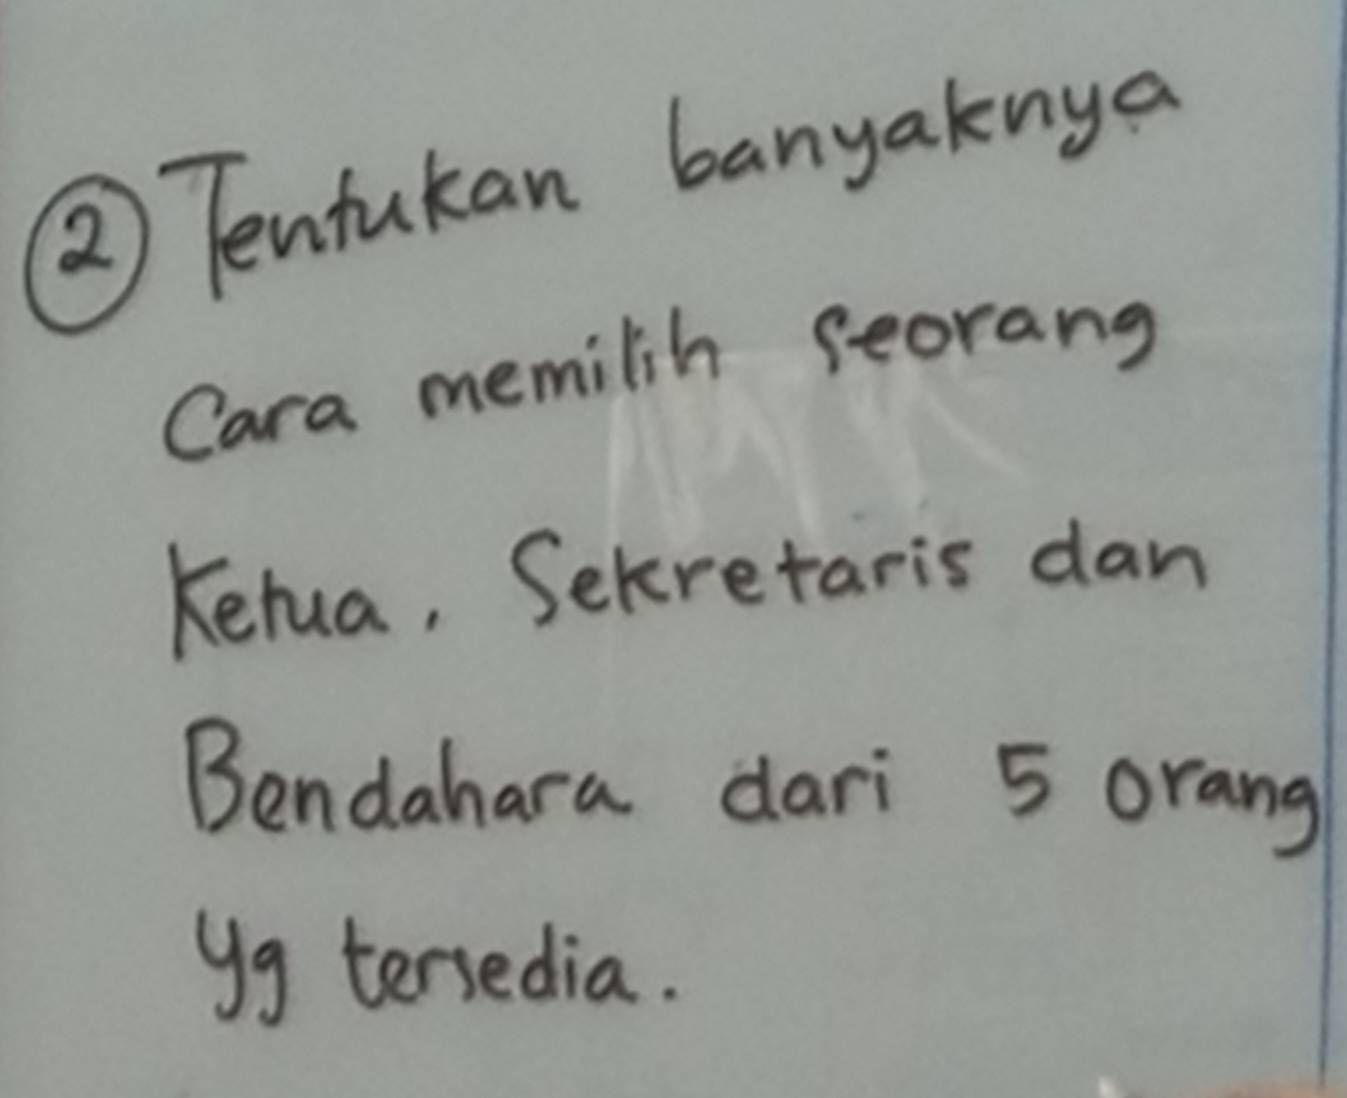 ② Tentukan banyaknya
Cara memilih seorang
Ketua, Sekretaris dan
Bendahara dari 5 orang
Yg tersedia.